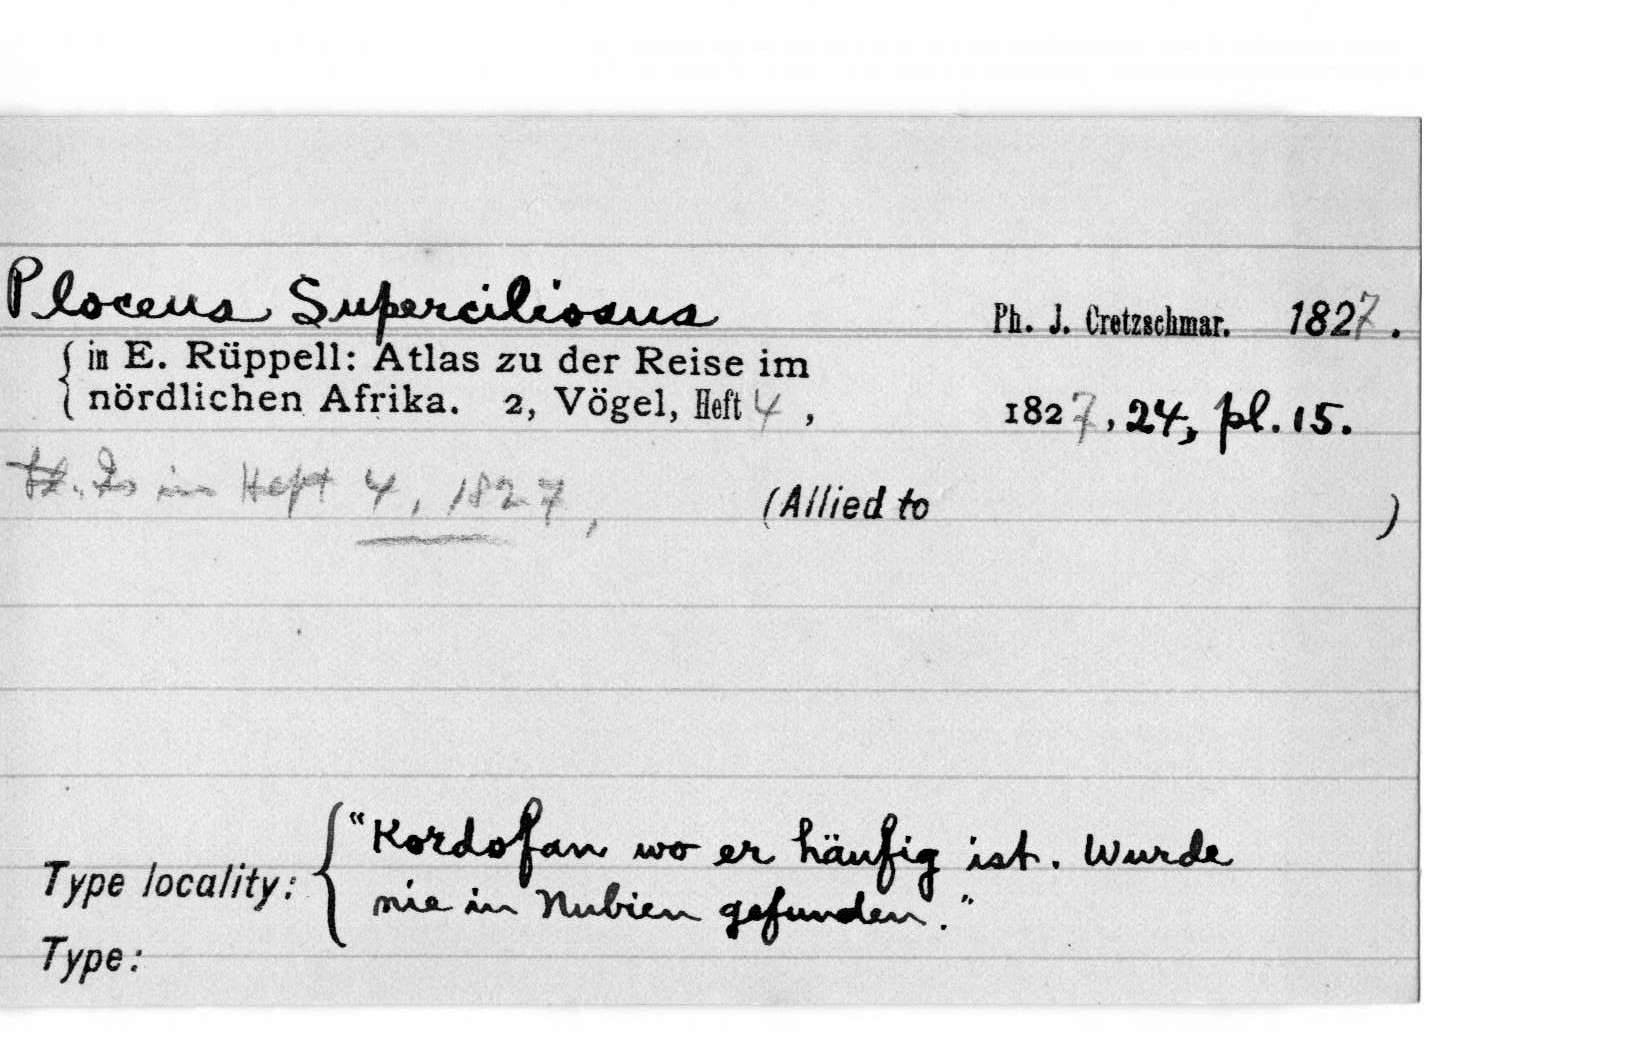 Ploceus Superciliosus Ph. J. Cretzschmar. 1827.
{ in E. Rüppell: Atlas zu der Reise im
nördlichen Afrika. 2, Vögel, Heft 4, 1827, 24, pl. 15.
is in Heft 4, 1827, (Allied to )
Type locality: { "Kordofan wo er häufig ist. Wurde
nie in Nubien gefunden."
Type: